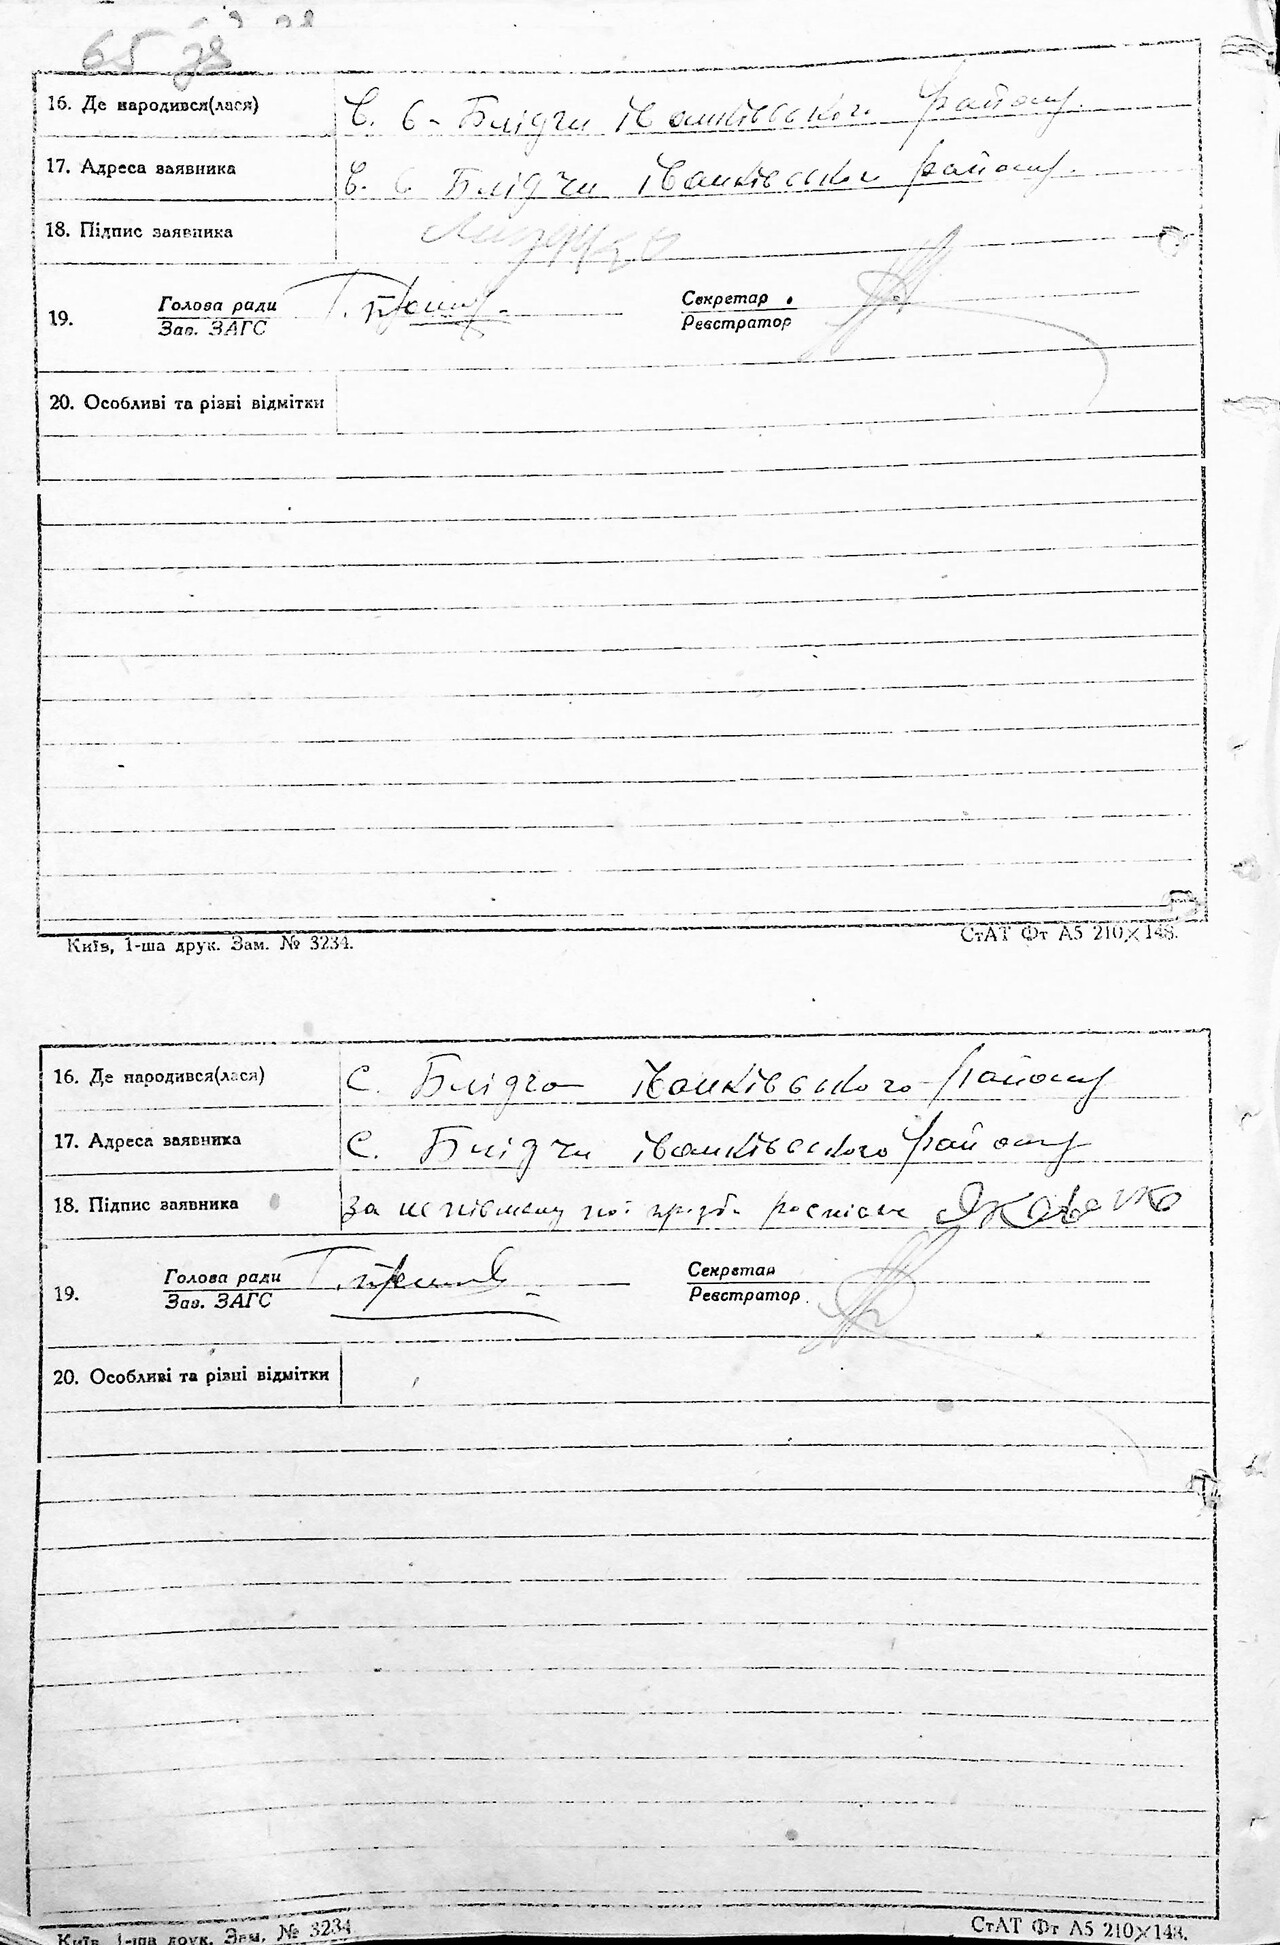 65 зв
16. Де народився(лася) в. с. Блідчи Іванківського району.
17. Адреса заявника в. с. Блідчи Іванківського району.
18. Підпис заявника
19. Голова ради Секретар
Зав. ЗАГС Реєстратор
20. Особливі та різні відмітки
Київ, 1-ша друк. Зам. № 3234. СтАТ Фт А5 210×148.
16. Де народився(лася) с. Блідча Іванківського району
17. Адреса заявника с. Блідчи Іванківського району
18. Підпис заявника за неписьмену
19. Голова ради Секретар
Зав. ЗАГС Реєстратор
20. Особливі та різні відмітки
Київ, 1-ша друк. Зам. № 3234 СтАТ Фт А5 210×148.